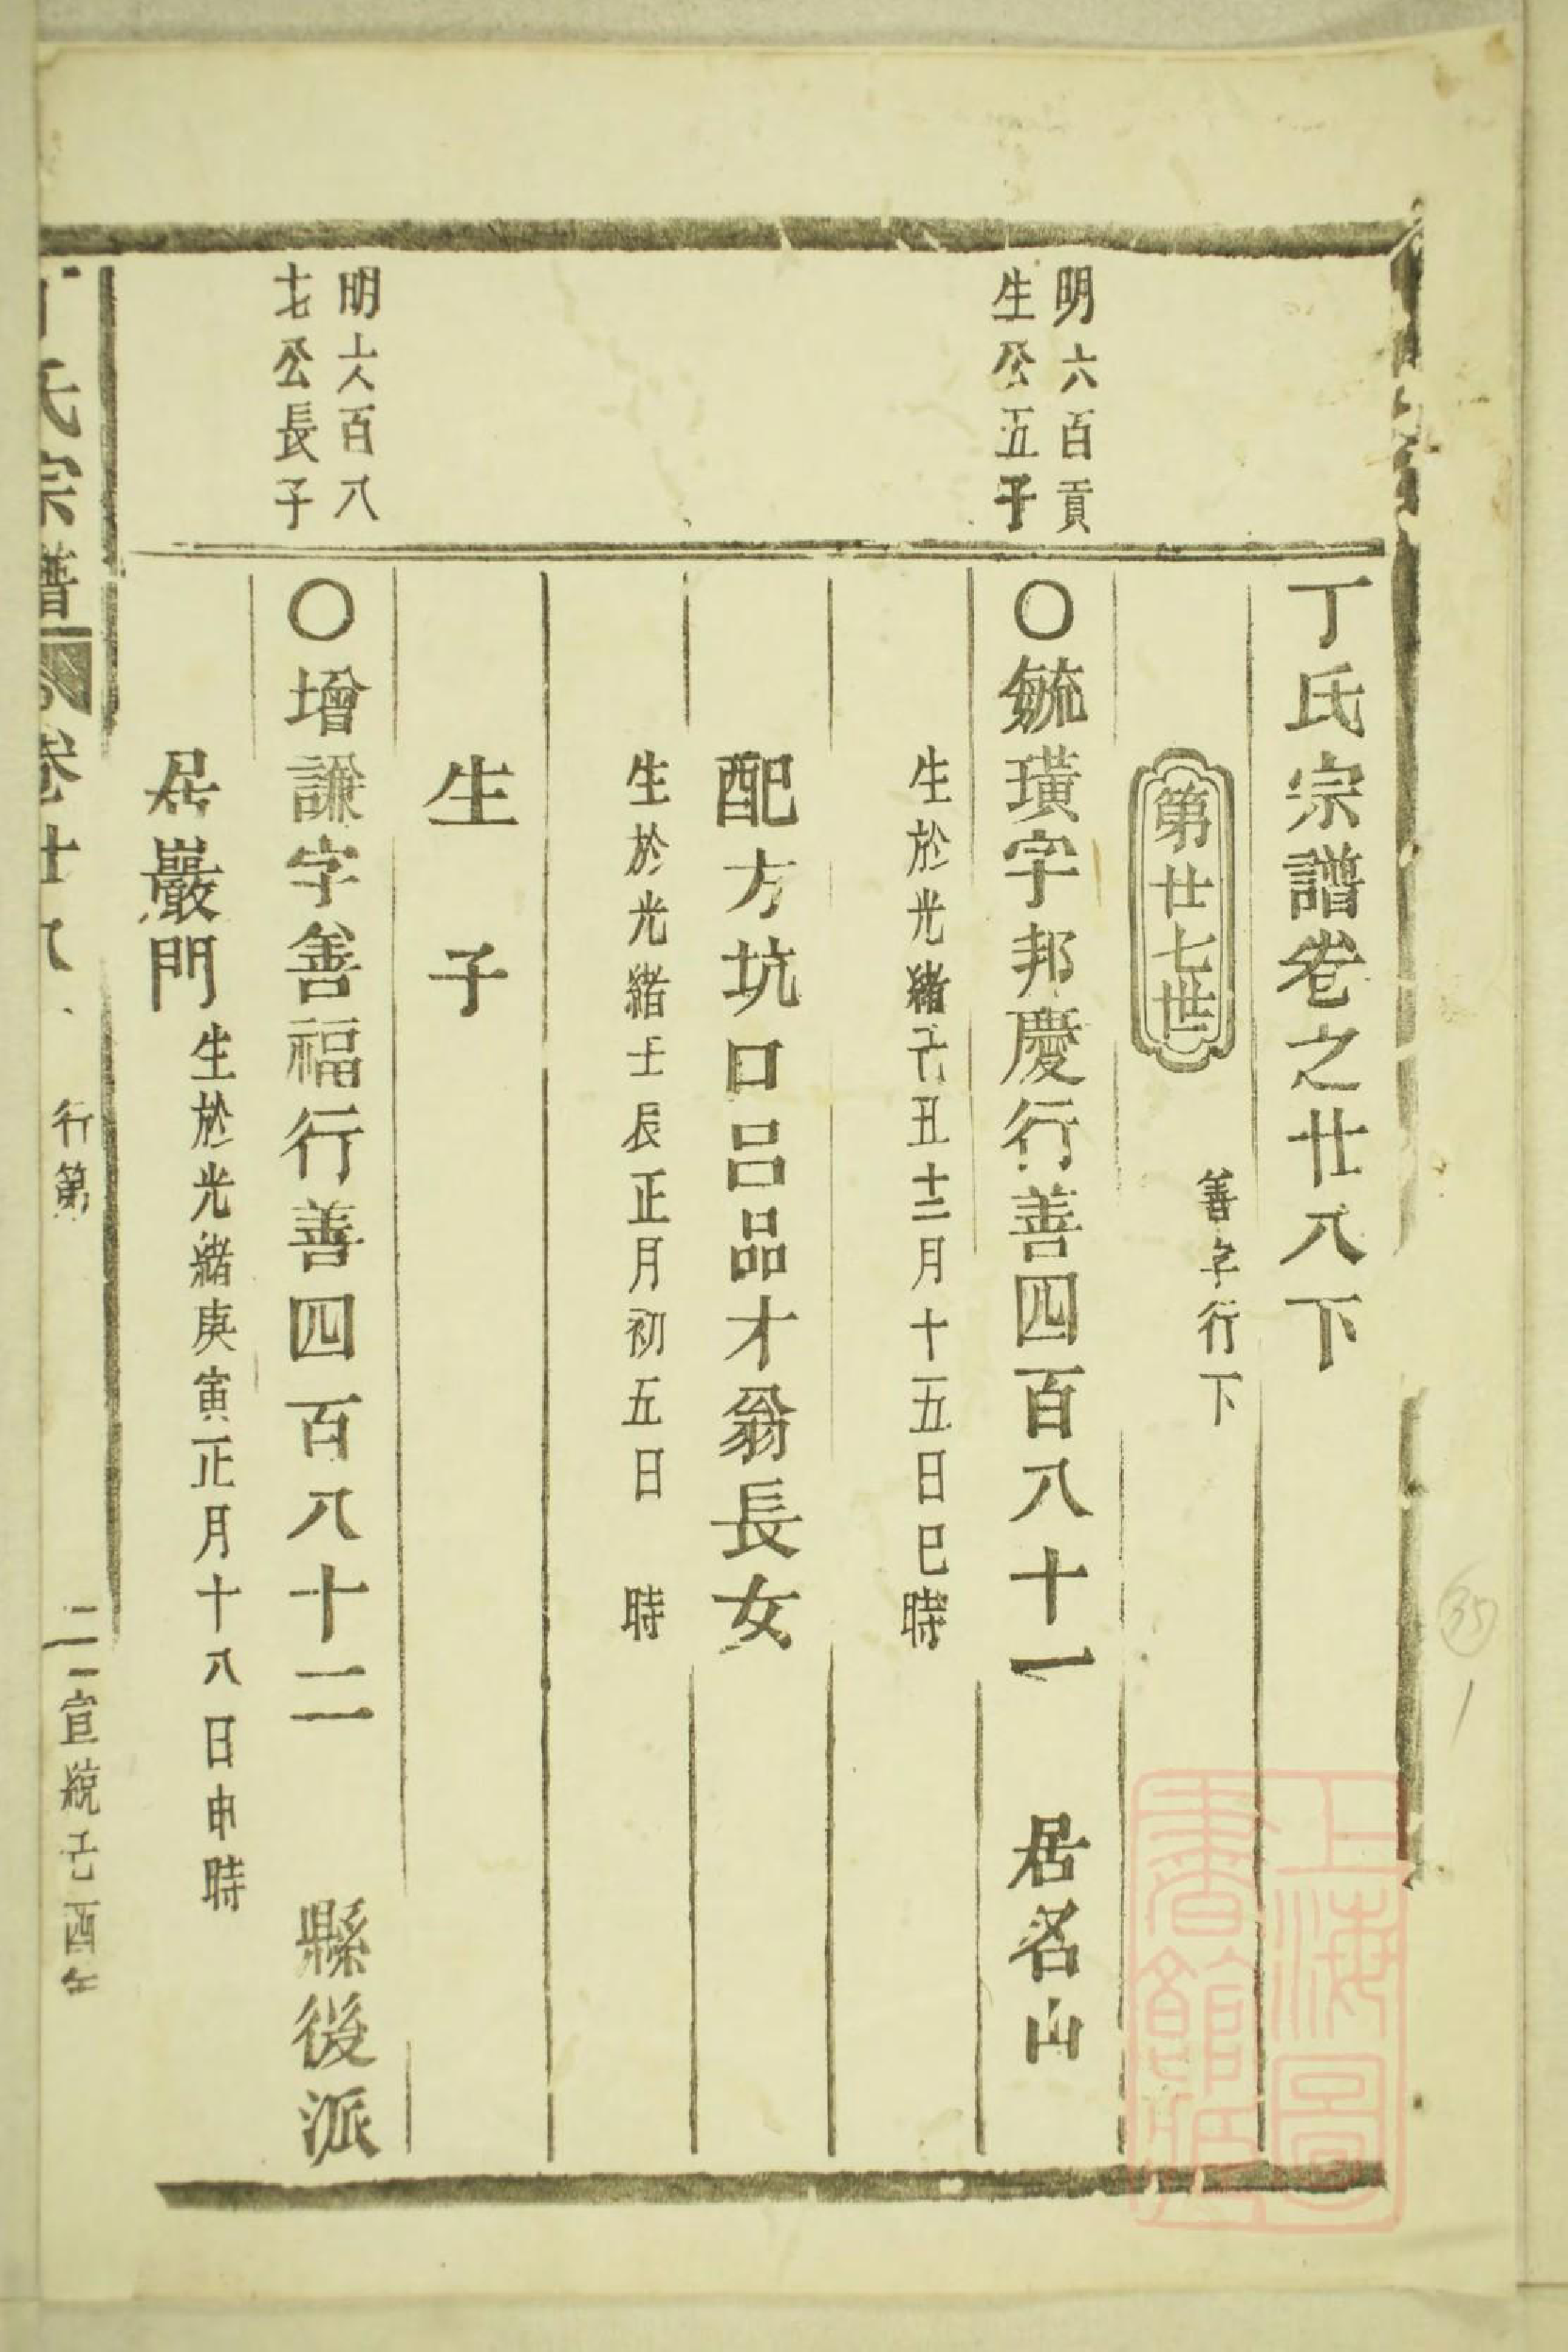 丁氏宗譜卷之廿八下
第廿七世
善字行下
明六百貢
生公五子
〇毓璜字邦慶行善四百八十一 居名山
生於光緒乙丑十二月十五日巳時
配方坑口呂品才翁長女
生於光緒壬辰正月初五日 時
生 子
明六百八
十七公長子
〇增謙字善福行善四百八十二 縣後派
居巖門
生於光緒庚寅正月十八日申時
丁氏宗譜 卷廿八 行第 一 宣統己酉年
上海圖
書館藏
35
1